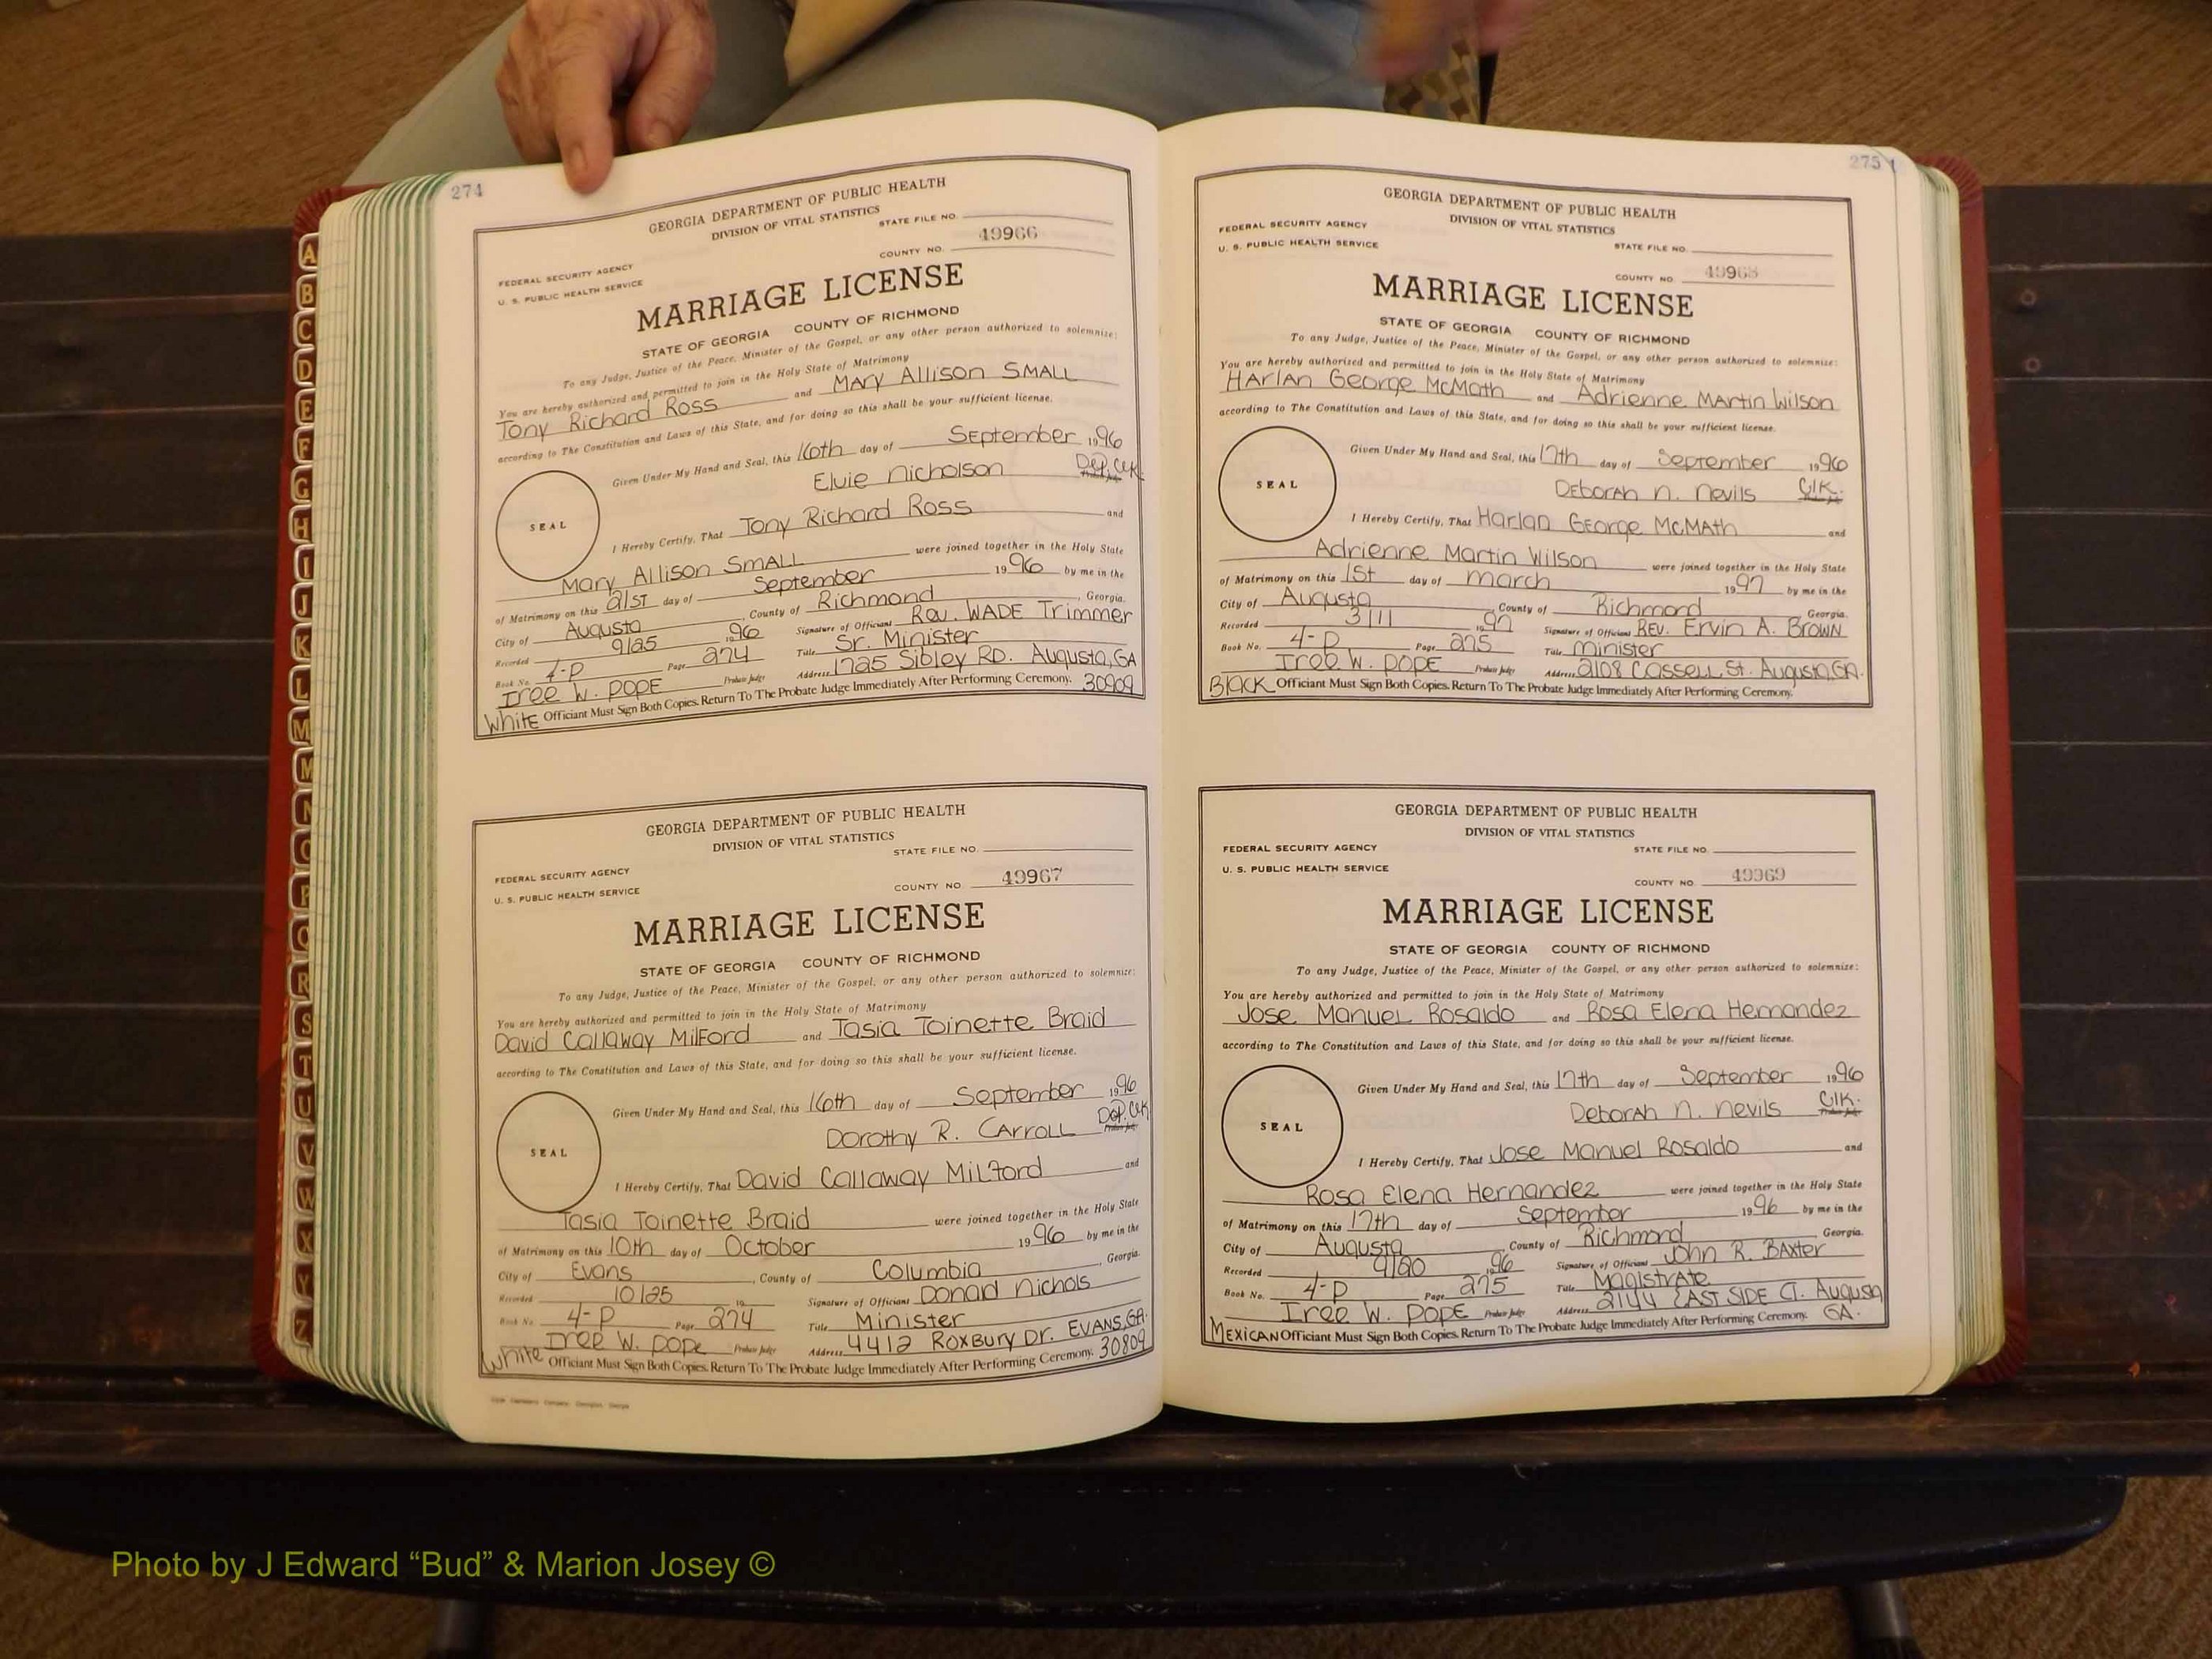 274
GEORGIA DEPARTMENT OF PUBLIC HEALTH
DIVISION OF VITAL STATISTICS
STATE FILE NO.
COUNTY NO. 49966
FEDERAL SECURITY AGENCY
U. S. PUBLIC HEALTH SERVICE
MARRIAGE LICENSE
STATE OF GEORGIA COUNTY OF RICHMOND
To any Judge, Justice of the Peace, Minister of the Gospel, or any other person authorized to solemnize:
You are hereby authorized and permitted to join in the Holy State of Matrimony
Tony Richard Ross and Mary Allison SMALL
according to The Constitution and Laws of this State, and for doing so this shall be your sufficient license.
Given Under My Hand and Seal, this 16th day of September 1996
Elvie Nicholson Dep. Clk
SEAL
I Hereby Certify, That Tony Richard Ross and
Mary Allison SMALL were joined together in the Holy State
of Matrimony on this 21st day of September 1996 by me in the
City of Augusta, County of Richmond, Georgia.
Recorded 9/25 1996 Signature of Officiant Rev. WADE Trimmer
Book No. 4-P Page 274 Title Sr. Minister
Iree W. POPE Probate Judge Address 1725 Sibley RD. Augusta, GA
White Officiant Must Sign Both Copies. Return To The Probate Judge Immediately After Performing Ceremony. 30909
GEORGIA DEPARTMENT OF PUBLIC HEALTH
DIVISION OF VITAL STATISTICS
STATE FILE NO.
FEDERAL SECURITY AGENCY
U. S. PUBLIC HEALTH SERVICE
COUNTY NO. 49967
MARRIAGE LICENSE
STATE OF GEORGIA COUNTY OF RICHMOND
To any Judge, Justice of the Peace, Minister of the Gospel, or any other person authorized to solemnize:
You are hereby authorized and permitted to join in the Holy State of Matrimony
David Callaway Milford and Tasia Toinette Braid
according to The Constitution and Laws of this State, and for doing so this shall be your sufficient license.
Given Under My Hand and Seal, this 16th day of September 1996
Dorothy R. CARROLL Dep. Clk
SEAL
I Hereby Certify, That David Callaway Milford and
Tasia Toinette Braid were joined together in the Holy State
of Matrimony on this 10th day of October 1996 by me in the
City of Evans, County of Columbia, Georgia.
Recorded 10/25 19 Signature of Officiant Donald Nichols
Book No. 4-P Page 274 Title Minister
Iree W. POPE Probate Judge Address 4412 Roxbury Dr. EVANS, GA.
White Officiant Must Sign Both Copies. Return To The Probate Judge Immediately After Performing Ceremony. 30809
275
GEORGIA DEPARTMENT OF PUBLIC HEALTH
DIVISION OF VITAL STATISTICS
FEDERAL SECURITY AGENCY
U. S. PUBLIC HEALTH SERVICE
STATE FILE NO.
COUNTY NO. 49968
MARRIAGE LICENSE
STATE OF GEORGIA COUNTY OF RICHMOND
To any Judge, Justice of the Peace, Minister of the Gospel, or any other person authorized to solemnize:
You are hereby authorized and permitted to join in the Holy State of Matrimony
Harlan George McMath and Adrienne Martin Wilson
according to The Constitution and Laws of this State, and for doing so this shall be your sufficient license.
Given Under My Hand and Seal, this 17th day of September 1996
Deborah N. Nevils Clk.
SEAL
I Hereby Certify, That Harlan George McMath and
Adrienne Martin Wilson were joined together in the Holy State
of Matrimony on this 1st day of March 1997 by me in the
City of Augusta, County of Richmond Georgia.
Recorded 3/11 1997 Signature of Officiant REV. Ervin A. BROWN
Book No. 4-P Page 275 Title Minister
Iree W. POPE Probate Judge Address 2108 Cassell St. Augusta, GA.
Black Officiant Must Sign Both Copies. Return To The Probate Judge Immediately After Performing Ceremony.
GEORGIA DEPARTMENT OF PUBLIC HEALTH
DIVISION OF VITAL STATISTICS
FEDERAL SECURITY AGENCY
STATE FILE NO.
U. S. PUBLIC HEALTH SERVICE
COUNTY NO. 49969
MARRIAGE LICENSE
STATE OF GEORGIA COUNTY OF RICHMOND
To any Judge, Justice of the Peace, Minister of the Gospel, or any other person authorized to solemnize:
You are hereby authorized and permitted to join in the Holy State of Matrimony
Jose Manuel Rosaldo and Rosa Elena Hernandez
according to The Constitution and Laws of this State, and for doing so this shall be your sufficient license.
Given Under My Hand and Seal, this 17th day of September 1996
Deborah N. Nevils Clk.
SEAL
I Hereby Certify, That Jose Manuel Rosaldo and
Rosa Elena Hernandez were joined together in the Holy State
of Matrimony on this 17th day of September 1996 by me in the
City of Augusta, County of Richmond Georgia.
Recorded 9/20 1996 Signature of Officiant John R. BAxter
Book No. 4-P Page 275 Title Magistrate
Iree W. POPE Probate Judge Address 2144 EAST SIDE Ct. Augusta
MEXICAN Officiant Must Sign Both Copies. Return To The Probate Judge Immediately After Performing Ceremony. GA.
A
B
C
D
E
F
G
H
I
J
K
L
M
M
N
O
P
Q
R
S
T
U
V
W
X
Y
Z
Photo by J Edward “Bud” & Marion Josey ©